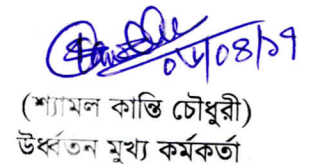 ০৮/০৪/১৭
(শ্যামল কান্তি চৌধুরী)
উর্ধ্বতন মুখ্য কর্মকর্তা